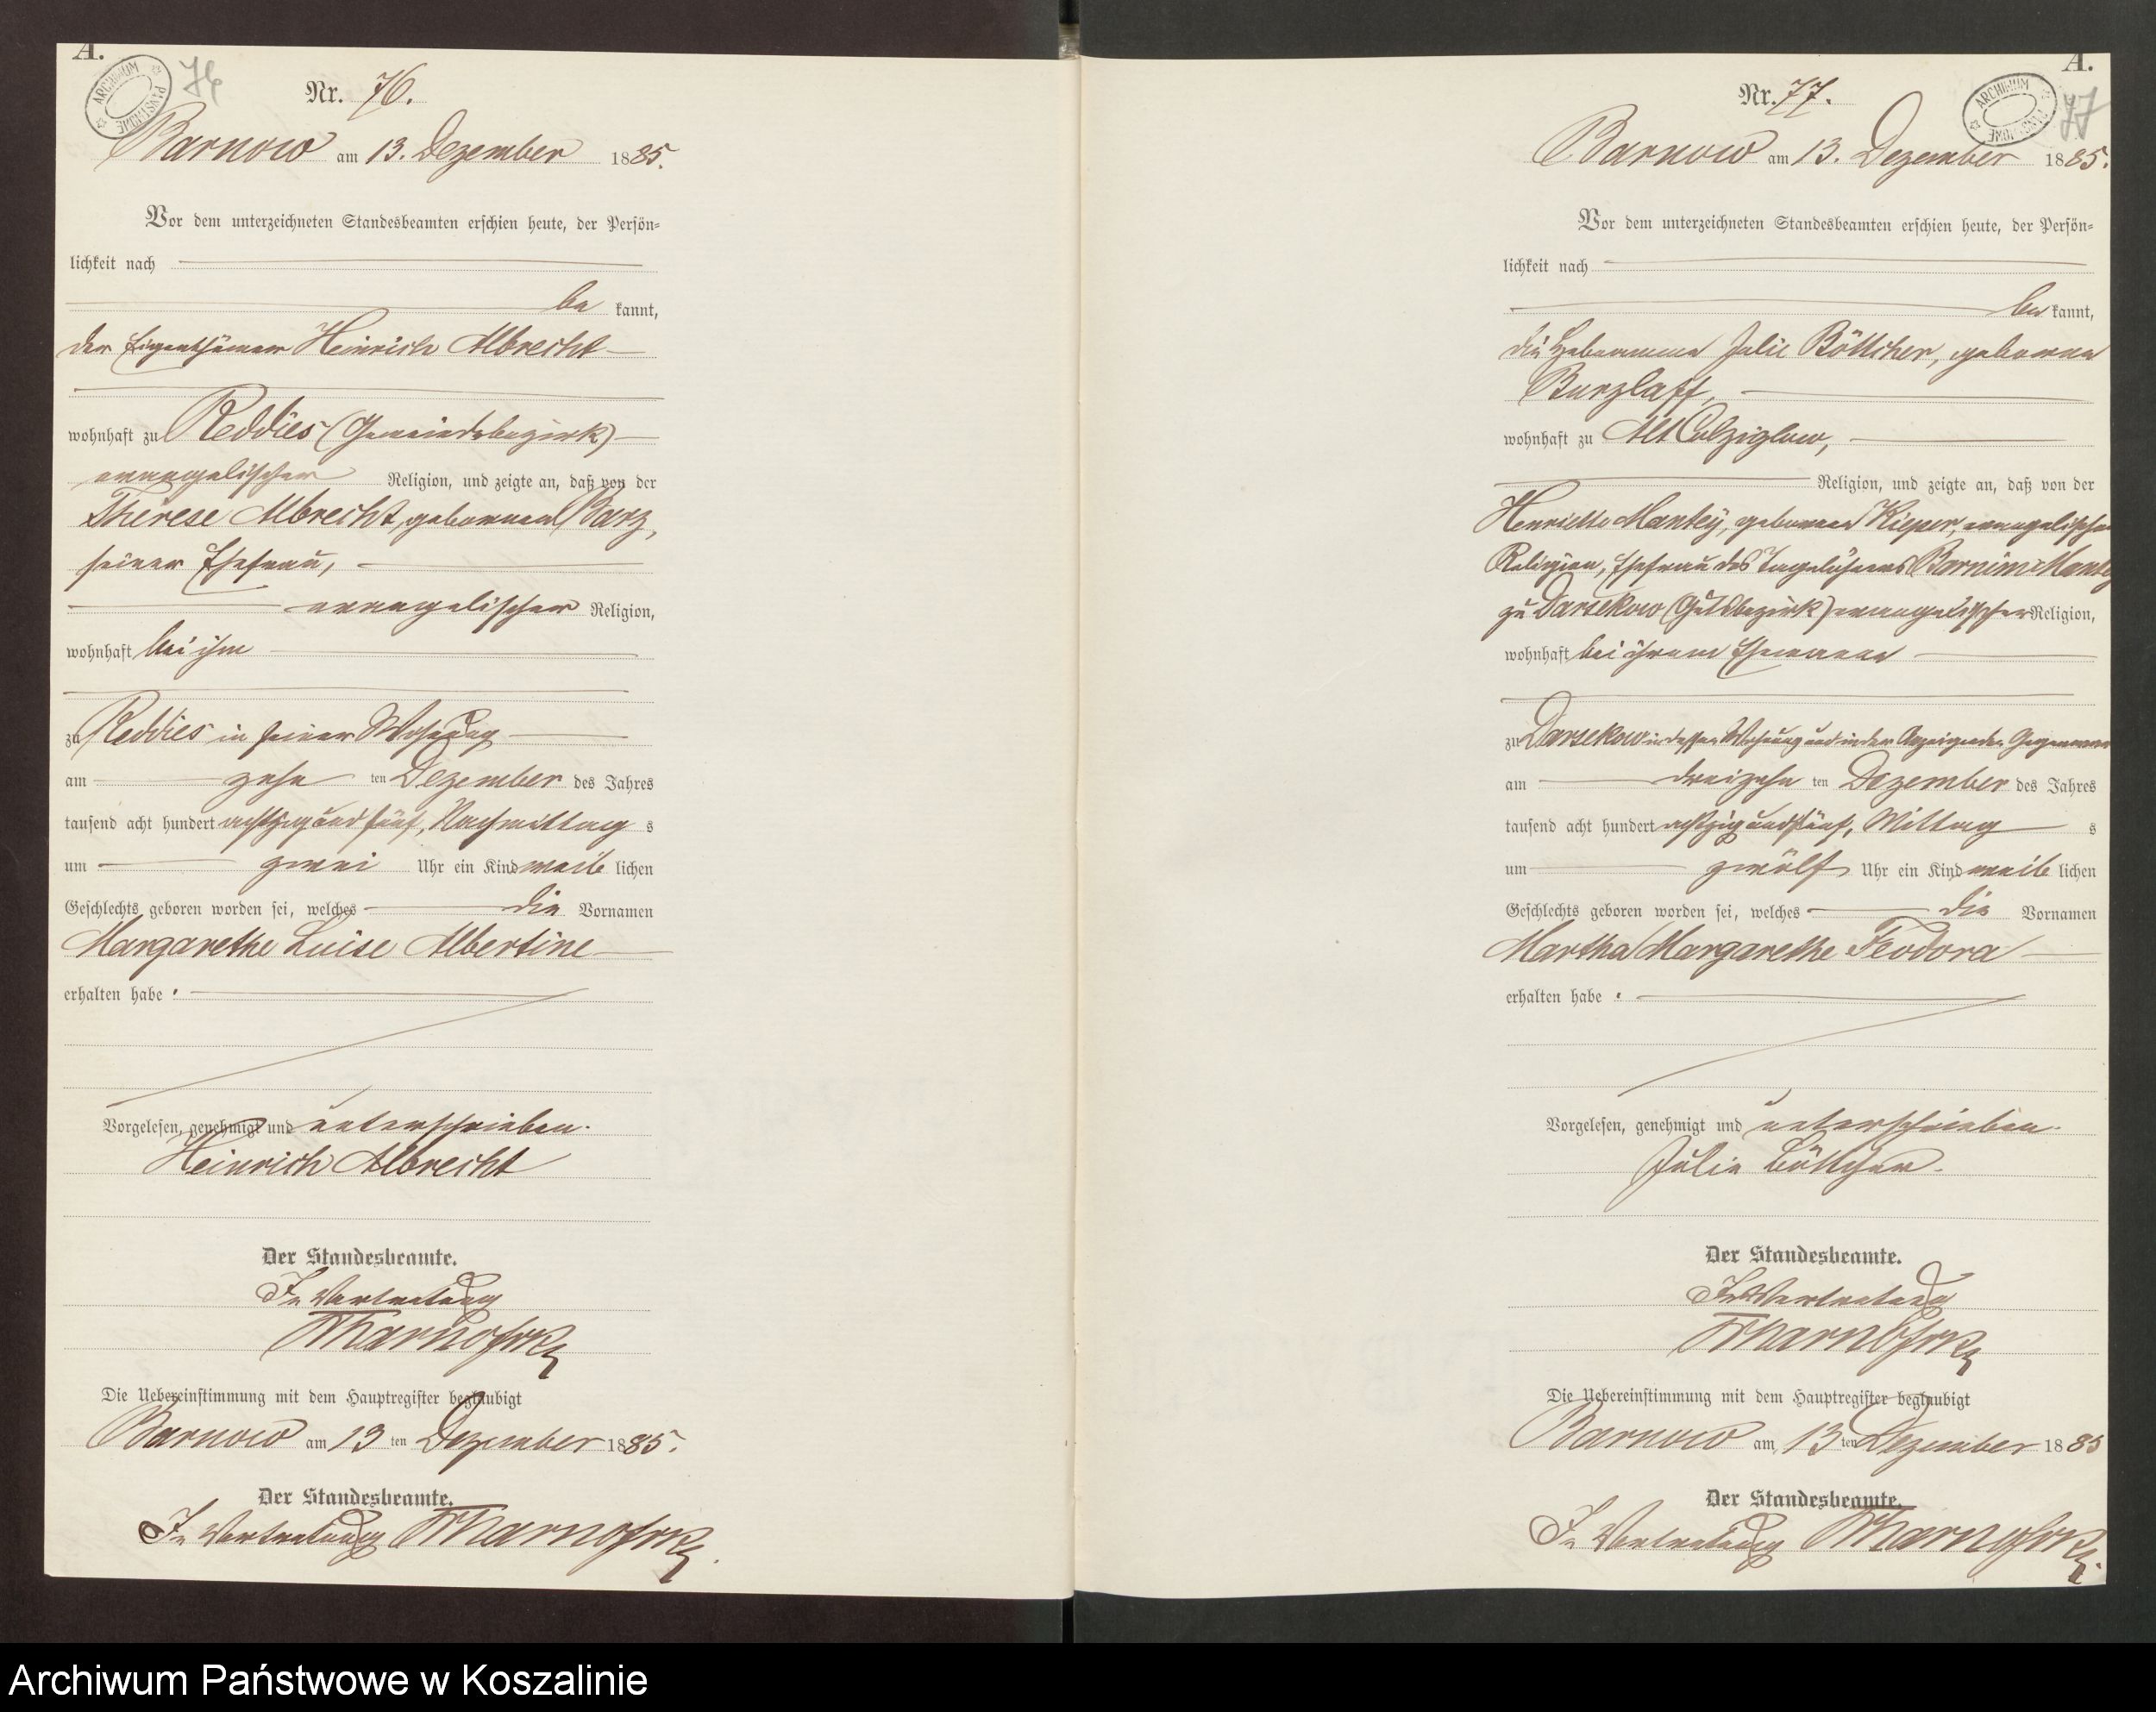 A.
ARCHIWUM PAŃSTWOWE
76
Nr. 76.
Barnow am 13. Dezember 1885.
Vor dem unterzeichneten Standesbeamten erschien heute, der Persön-
lichkeit nach
be kannt,
der Eigenthümer Heinrich Albrecht
wohnhaft zu Reddies (Gemeindebezirk)
evangelischer Religion, und zeigte an, daß von der
Therese Albrecht, geborenen Barz,
seiner Ehefrau,
evangelischer Religion,
wohnhaft bei ihm
zu Reddies in seiner Wohnung
am zehn ten Dezember des Jahres
tausend acht hundert achtzig und fünf, Nachmittag s
um zwei Uhr ein Kind weib lichen
Geschlechts geboren worden sei, welches die Vornamen
Margarethe Luise Albertine
erhalten habe .
Vorgelesen, genehmigt und unterschrieben.
Heinrich Albrecht
Der Standesbeamte.
In Vertretung
Die Uebereinstimmung mit dem Hauptregister beglaubigt
Barnow am 13 ten Dezember 1885.
Der Standesbeamte.
In Vertretung
A.
ARCHIWUM PAŃSTWOWE
77
Nr. 77.
Barnow am 13. Dezember 1885.
Vor dem unterzeichneten Standesbeamten erschien heute, der Persön-
lichkeit nach
be kannt,
die Hebamme Julie Böttcher, geborene
Burzlaff,
wohnhaft zu Alt Colziglow,
Religion, und zeigte an, daß von der
Henriette Mantey, geborene Kieper, evangelischer
Religion, Ehefrau des Tagelöhners Barnim Mantey
zu Darsekow (Gutsbezirk) evangelischer Religion,
wohnhaft bei ihrem Ehemann
zu Darsekow in dessen Wohnung und in der Anzeigenden Gegenwart
am dreizehn ten Dezember des Jahres
tausend acht hundert achtzig und fünf, Mittag s
um zwölf Uhr ein Kind weib lichen
Geschlechts geboren worden sei, welches die Vornamen
Martha Margarethe Feodora
erhalten habe .
Vorgelesen, genehmigt und unterschrieben.
Julie Böttcher.
Der Standesbeamte.
In Vertretung
Die Uebereinstimmung mit dem Hauptregister beglaubigt
Barnow am 13 ten Dezember 1885
Der Standesbeamte.
In Vertretung
Archiwum Państwowe w Koszalinie